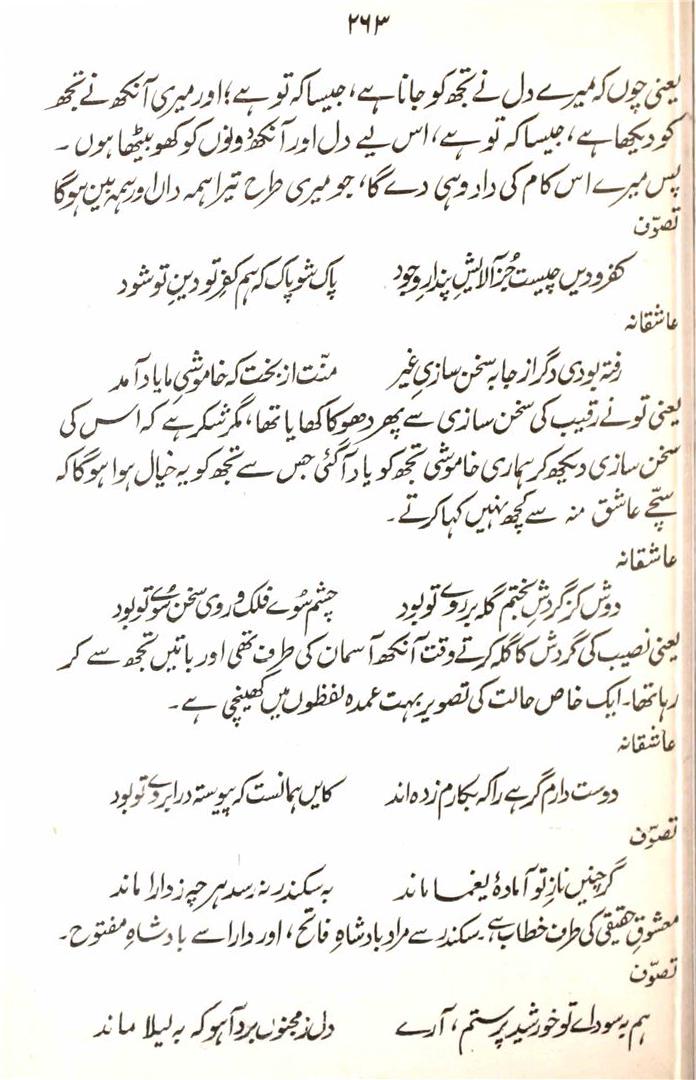 ۲۶۳
یعنی چوں کہ میرے دل نے تجھ کو جانا ہے، جیسا کہ تو ہے؛ اور میری آنکھ نے تجھ
کو دیکھا ہے، جیسا کہ تو ہے، اس لیے دل اور آنکھ دونوں کو کھو بیٹھا ہوں۔
پس میرے اس کام کی داد وہی دے گا، جو میری طرح تیرا ہمہ داں اور ہمہ بین ہوگا
تصوّف
کفر و دیں چیست جُز آلایشِ پندارِ وجود پاک شو پاک کہ ہم کفرِ تو دینِ تو شود
عاشقانہ
رفتہ بودی دگر از جا بہ سخن سازیِ غیر منّت از بخت کہ خاموشیِ ما یاد آمد
یعنی تو نے رقیب کی سخن سازی سے پھر دھوکا کھایا تھا، مگر شکر ہے کہ اس کی
سخن سازی دیکھ کر ہماری خاموشی تجھ کو یاد آگئی جس سے تجھ کو یہ خیال ہوا ہوگا کہ
سچّے عاشق منہ سے کچھ نہیں کہا کرتے۔
عاشقانہ
دوش کز گردشِ بختم گلہ بر روے تو بود چشم سُوے فلک و روی سخن سُوے تو بود
یعنی نصیب کی گردش کا گلہ کرتے وقت آنکھ آسمان کی طرف تھی اور باتیں تجھ سے کر
رہا تھا۔ ایک خاص حالت کی تصویر بہت عمدہ لفظوں میں کھینچی ہے۔
عاشقانہ
دوست دارم گرہے را کہ بکارم زدہ اند کایں ہمانست کہ پیوستہ در ابروے تو بود
تصوّف
گر چنیں نازِ تو آمادۂ یغما ماند بہ سکندر نہ رسد ہر چہ ز دارا ماند
معشوقِ حقیقی کی طرف خطاب ہے۔ سکندر سے مراد بادشاہِ فاتح، اور دارا سے بادشاہِ مفتوح۔
تصوّف
ہم بہ سوداے تو خورشید پرستم، آرے دل ز مجنوں برد آہو کہ بہ لیلا ماند